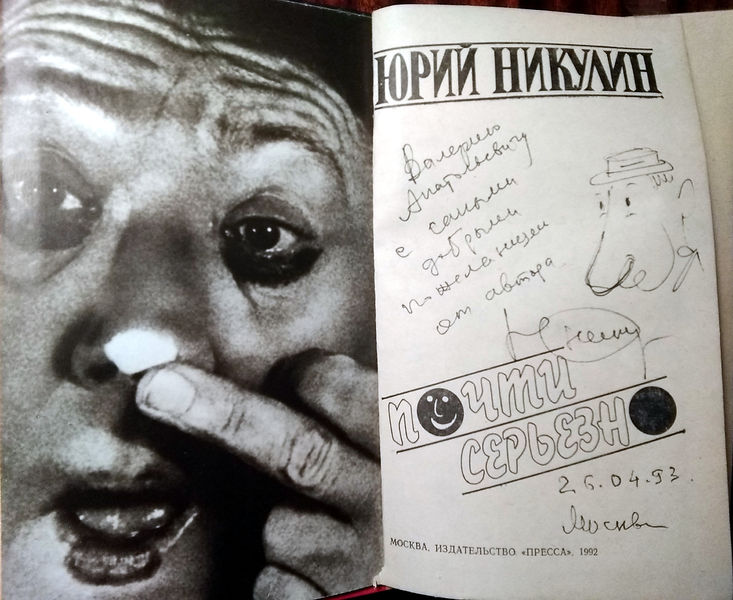 ЮРИЙ НИКУЛИН
Валерию
Анатольевичу
с самыми
добрыми
пожеланиями
от автора
ПОЧТИ
СЕРЬЕЗНО
26.04.93.
Москва
МОСКВА, ИЗДАТЕЛЬСТВО «ПРЕССА», 1992